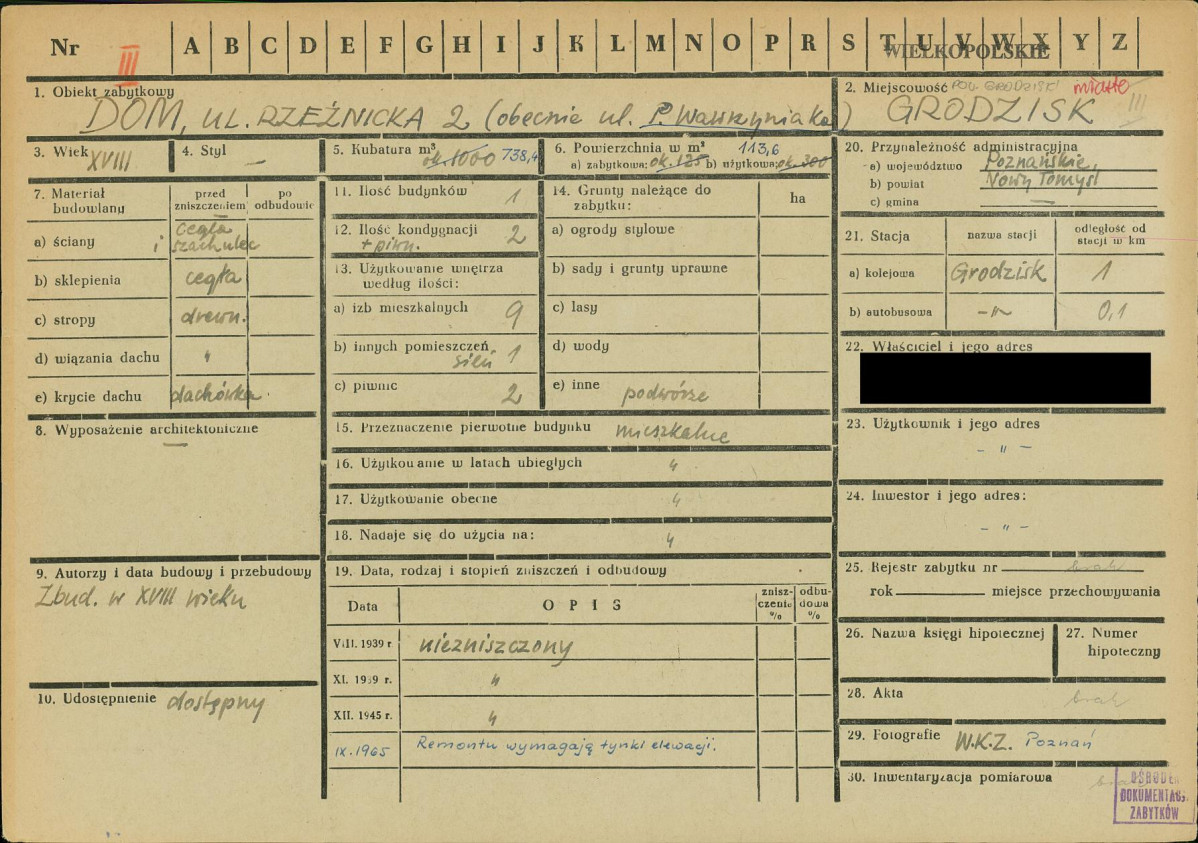 Nr III A B C D E F G H I J K L M N O P R S T U V W X Y Z
WIELKOPOLSKIE
1. Obiekt zabytkowy
DOM, UL. RZEŹNICKA 2 (obecnie ul. P. Wawrzyniaka)
2. Miejscowość POW. GRODZISKI miasto
GRODZISK III
3. Wiek XVIII
4. Styl —
5. Kubatura m³
ok. 1000 738,4
6. Powierzchnia w m² 113,6
a) zabytkowa: ok. 125 b) użytkowa: ok. 300
7. Materiał budowlany
przed zniszczeniem
po odbudowie
—
a) ściany cegła i szachulec
b) sklepienia cegła
c) stropy drewn.
d) wiązania dachu "
e) krycie dachu dachówka
8. Wyposażenie architektoniczne
—
9. Autorzy i data budowy i przebudowy
Zbud. w XVIII wieku
10. Udostępnienie dostępny
11. Ilość budynków 1
12. Ilość kondygnacji 2
+ piwn.
13. Użytkowanie wnętrza
według ilości:
a) izb mieszkalnych 9
b) innych pomieszczeń
sień 1
c) piwnic 2
14. Grunty należące do
zabytku:
ha
a) ogrody stylowe
b) sady i grunty uprawne
c) lasy
d) wody
e) inne podwórze
15. Przeznaczenie pierwotne budynku mieszkalne
16. Użytkowanie w latach ubiegłych "
17. Użytkowanie obecne "
18. Nadaje się do użycia na: "
19. Data, rodzaj i stopień zniszczeń i odbudowy
Data
OPIS
znisz-
czenie
%
odbu-
dowa
%
VIII. 1939 r. niezniszczony
XI. 1939 r. "
XII. 1945 r. "
IX. 1965 Remontu wymagają tynki elewacji.
20. Przynależność administracyjna
a) województwo Poznańskie,
b) powiat Nowy Tomyśl
c) gmina —
21. Stacja
nazwa stacji
odległość od
stacji w km
a) kolejowa Grodzisk 1
b) autobusowa -"- 0,1
22. Właściciel i jego adres
23. Użytkownik i jego adres
- " -
24. Inwestor i jego adres:
- " -
25. Rejestr zabytku nr brak
rok miejsce przechowywania
26. Nazwa księgi hipotecznej
27. Numer
hipoteczny
28. Akta brak
29. Fotografie W.K.Z. Poznań
30. Inwentaryzacja pomiarowa brak
OŚRODEK
DOKUMENTACJI
ZABYTKÓW